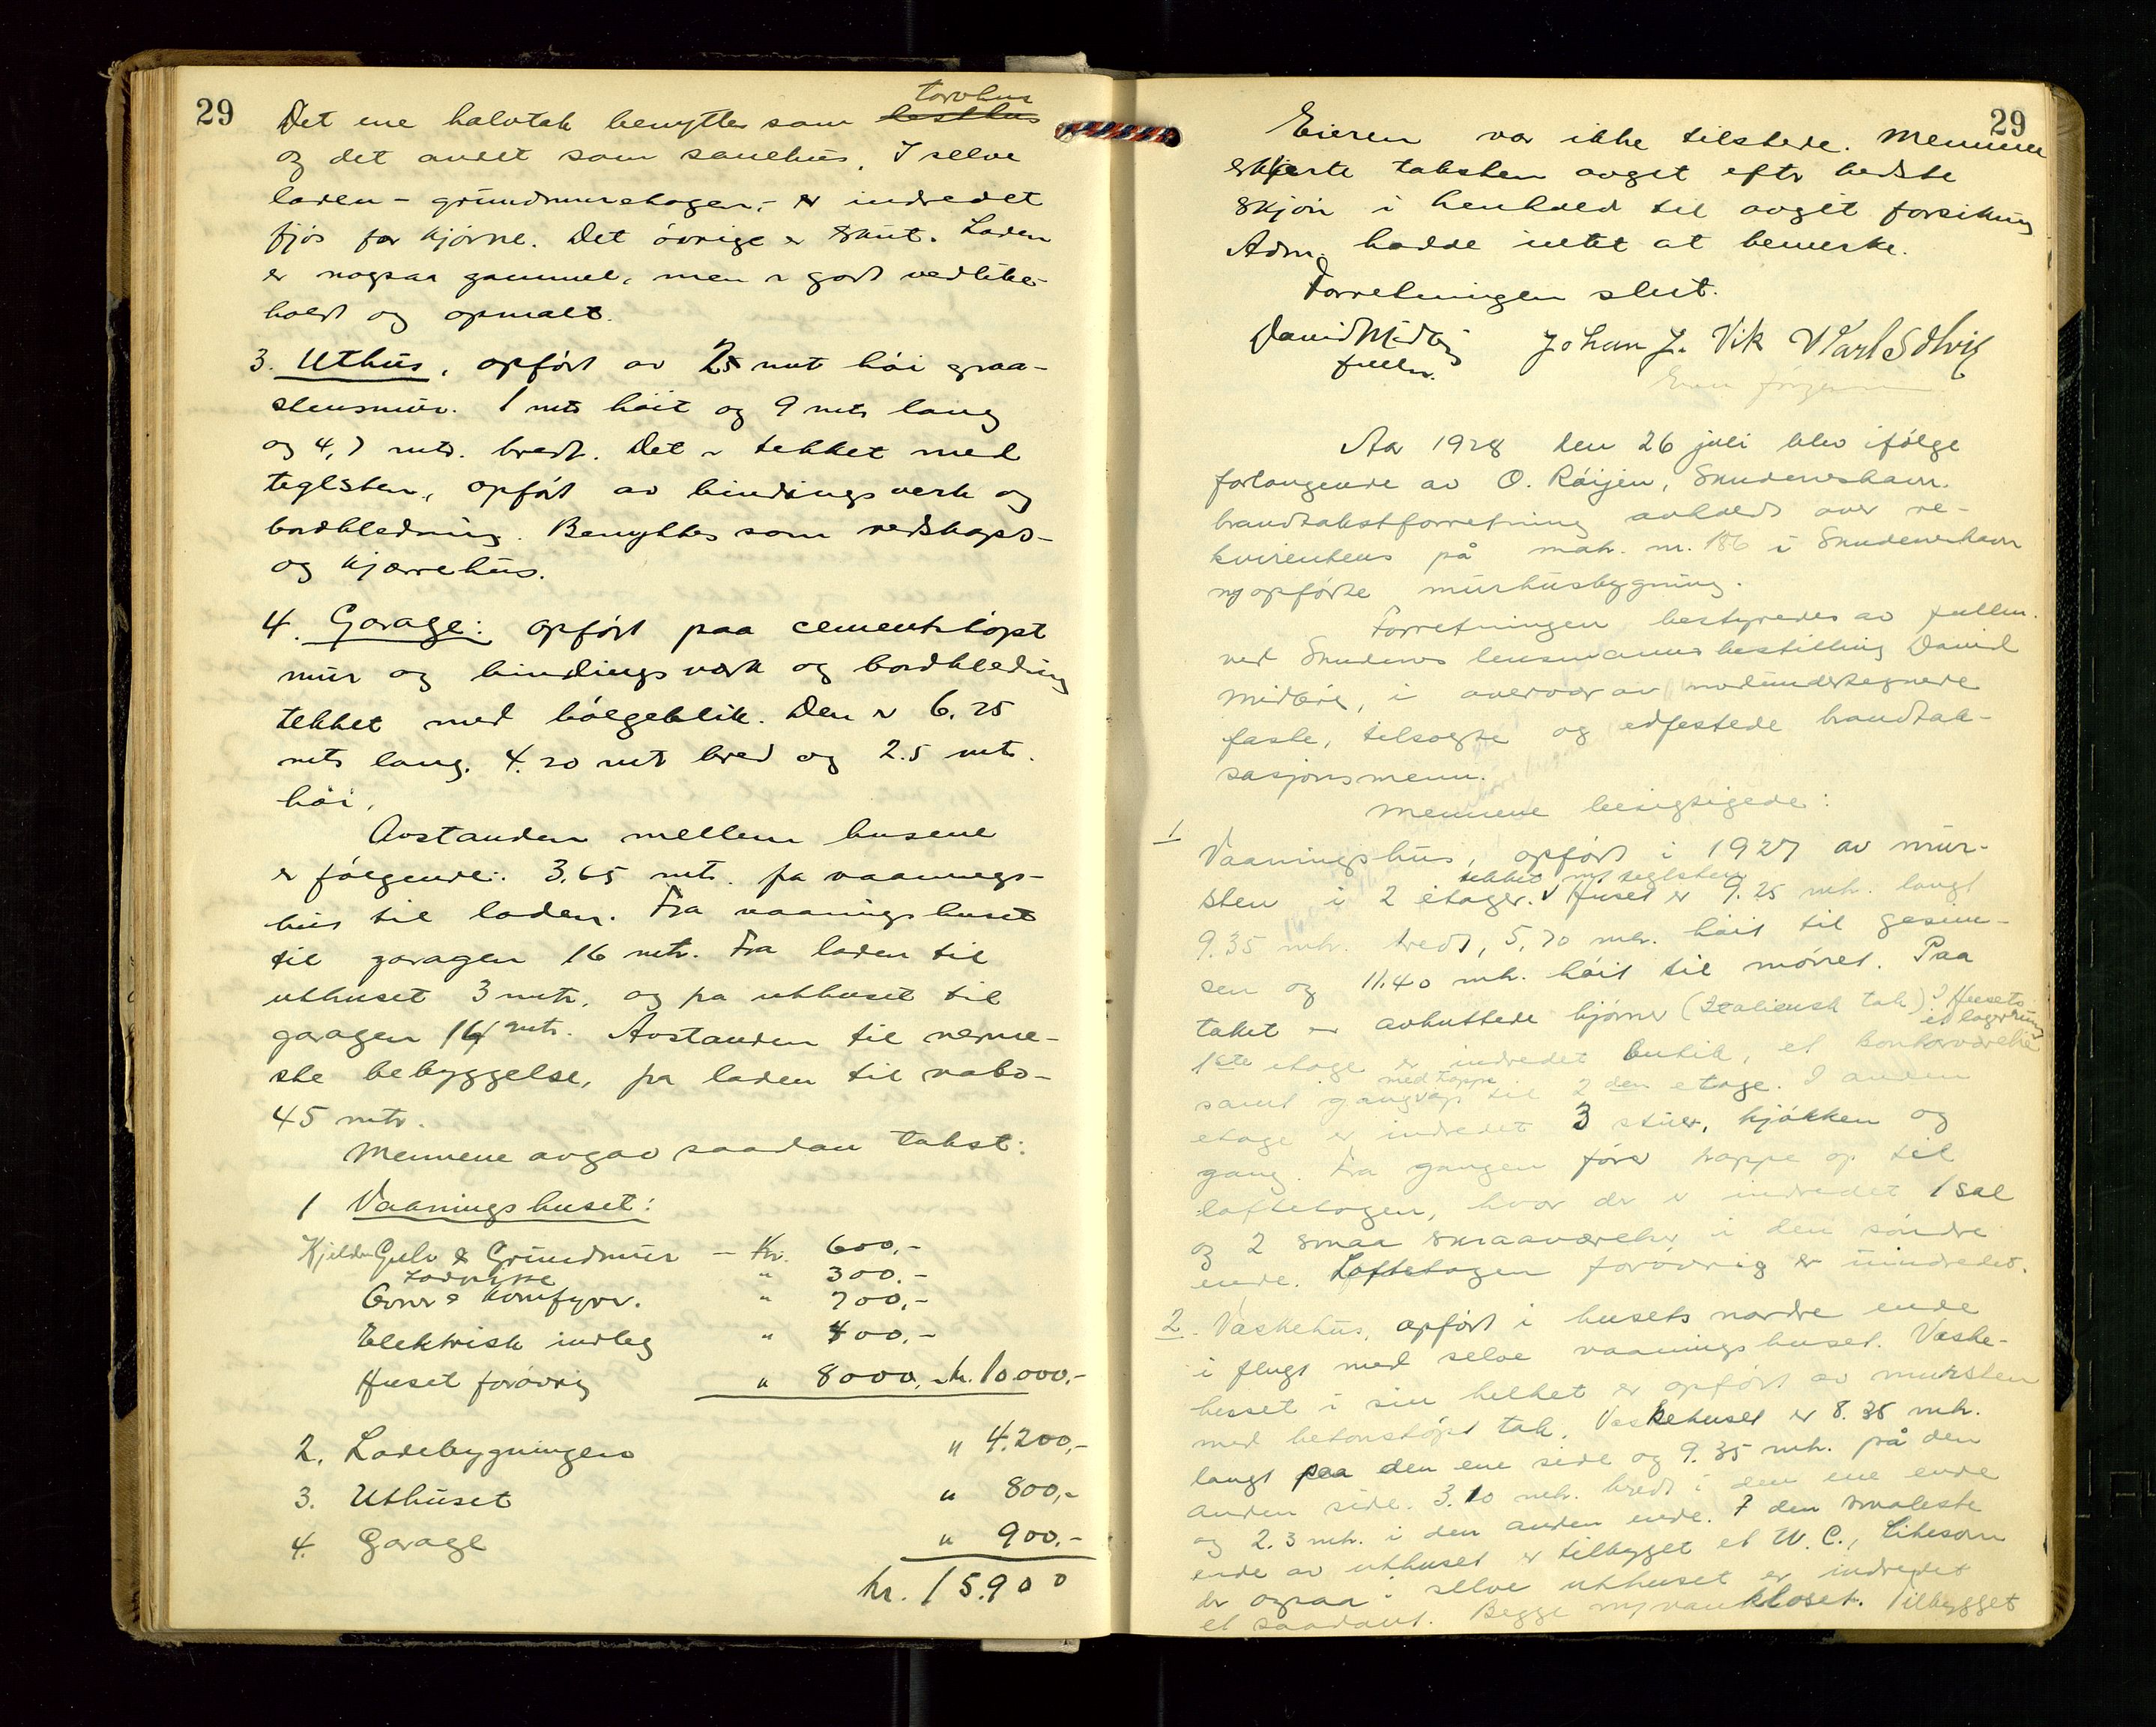 29
torvhus
Det ene halvtak benyttes som hesthus
og det andet som sauehus. I selve
laden - grundmuretagen,- er indredet
fjøs for kjørne. Det øvrige er skut. Laden
er nogsaa gammel, men er godt vedlike-
holdt og opmalt.
3. Uthus, opført av 25 mtr høi graa-
stensmur. 1 mtr høit og 9 mtr lang
og 4,7 mtr. bredt. Det er tekket med
teglsten, opført av bindingsverk og
bordkledning. Benyttes som redskaps-
og kjærrehus.
4. Garage: opført paa cementstøpt
mur og bindingsverk og bordkledning
tekket med bølgeblik. Den er 6.25
mtr lang. 4.20 mtr bred og 2.5 mtr.
høi.
Avstanden mellem husene
er følgende: 3.65 mtr. fra vaanings-
hus til laden. Fra vaaningshuset
til garagen 16 mtr. Fra laden til
uthuset 3 mtr, og fra uthuset til
garagen 14 mtr. Avstanden til nerme-
ste bebyggelse, fra laden til nabo-
45 mtr.
Mennene avgav saadan takst:
1 Vaaningshuset:
Kjelder Gulv & Grundmur - Kr. 600,-
" 300.-
Ovner & komfyrer. " 700,-
Elektrisk indleg " 400,-
Huset forøvrig " 8000,- kr. 10.000,-
2. Ladebygningen " 4.200,-
3. Uthuset " 800,-
4. Garage " 900.-
kr. 15.900
29
Eieren var ikke tilstede. Mennene
erklærte taksten avgit efter bedste
skjøn i henhold til avgit forsikring
Adm. hadde intet at bemerke.
Forretningen slut.
David Midbøe Johan J. Vik Karl Solvig
fullm.
Aar 1928 den 26 juli blev ifølge
forlangende av O. Røijen, Skudeneshavn.
brandtakstforretning avholdt over re-
kvirentens på matr. nr. 186 i Skudeneshavn
nyopførte murhusbygning.
Forretningen bestyredes av fullm.
ved Skudenes lensmannsbestilling David
Midbøe, i overvær av medundertegnede
faste, tilsagte og edfestede brandtak-
sasjonsmenn.
Mennene besigtigede:
1
Vaaningshus, opført i 1927 av mur-
tekket m/ teglsten
sten i 2 etager. Huset er 9.25 mtr. langt
9.35 mtr. bredt, 5,70 mtr. høit til gesim-
sen og 11.40 mtr. høit til mønet. Paa
taket er avkuttede hjørner (Italiensk tak). I Husets
et lagerrum
1ste etage er indredet butik, et kontorværelse
med trappe
samt gang op til 2 den etage. I anden
etage er indredet 3 stuer, kjøkken og
gang. Fra gangen fører trappe op til
loftetagen, hvor der er indredet 1 sal
og 2 smaa smaaværelser i den søndre
ende. Loftetagen forøvrig er uindredet.
2. Vaskehus, opført i husets nordre ende
i flugt med selve vaaningshuset. Vaske-
huset i sin helhet er opført av mursten
med betonstøpt tak. Vaskehuset er 8.35 mtr.
langt paa den ene side og 9.35 mtr. på den
anden side. 3.10 mtr. bredt i den ene ende
og 2.3 mtr. i den anden ende. I den smaleste
ende av uthuset er tilbygget et W.C., likesom
der ogsaa i selve uthuset er indredet
et saadant. Begge m/ vankloset. Tilbygget